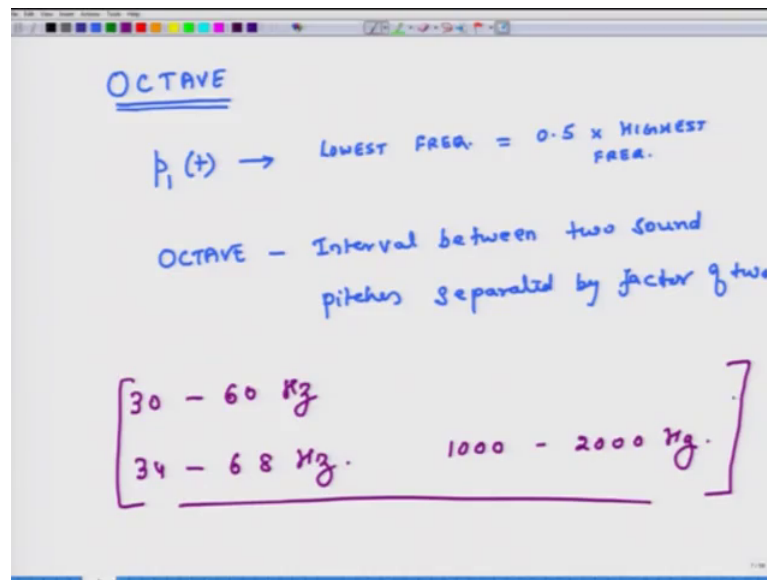 OCTAVE
p₁ (t) → LOWEST FREQ. = 0.5 x HIGHEST
FREQ.
OCTAVE - Interval between two sound
pitches separated by factor of two
30 - 60 Hz
34 - 68 Hz. 1000 - 2000 Hz.